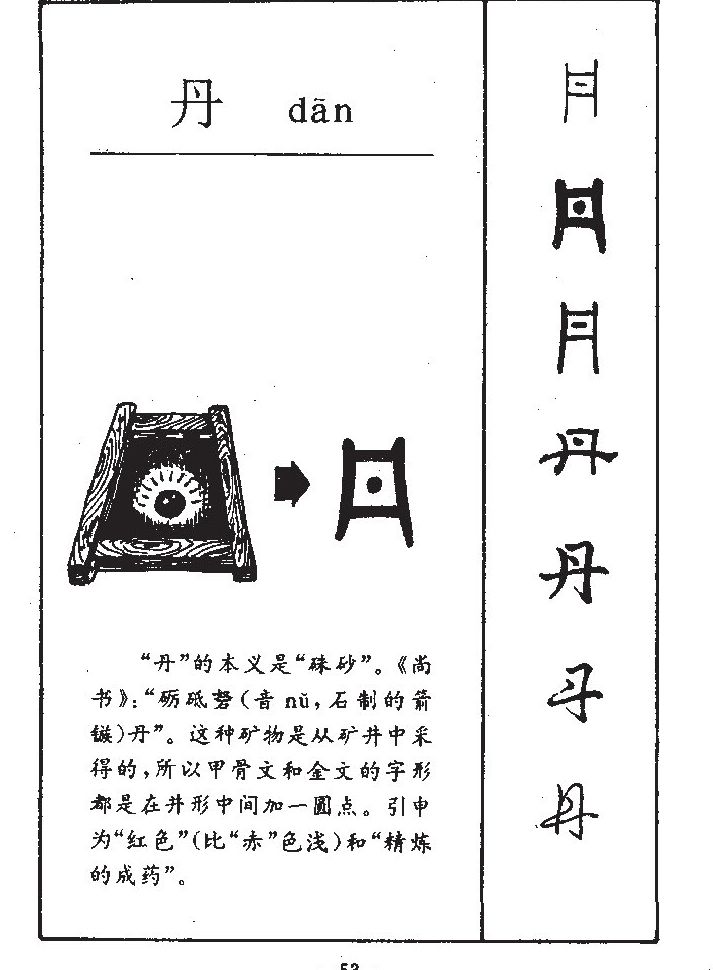 丹 dān
“丹”的本义是“硃砂”。《尚
书》:“砺砥砮(音 nǔ,石制的箭
镞)丹”。这种矿物是从矿井中采
得的,所以甲骨文和金文的字形
都是在井形中间加一圆点。引申
为“红色”(比“赤”色浅)和“精炼
的成药”。
丹
丹
丹
丹
丹
丹
丹
53